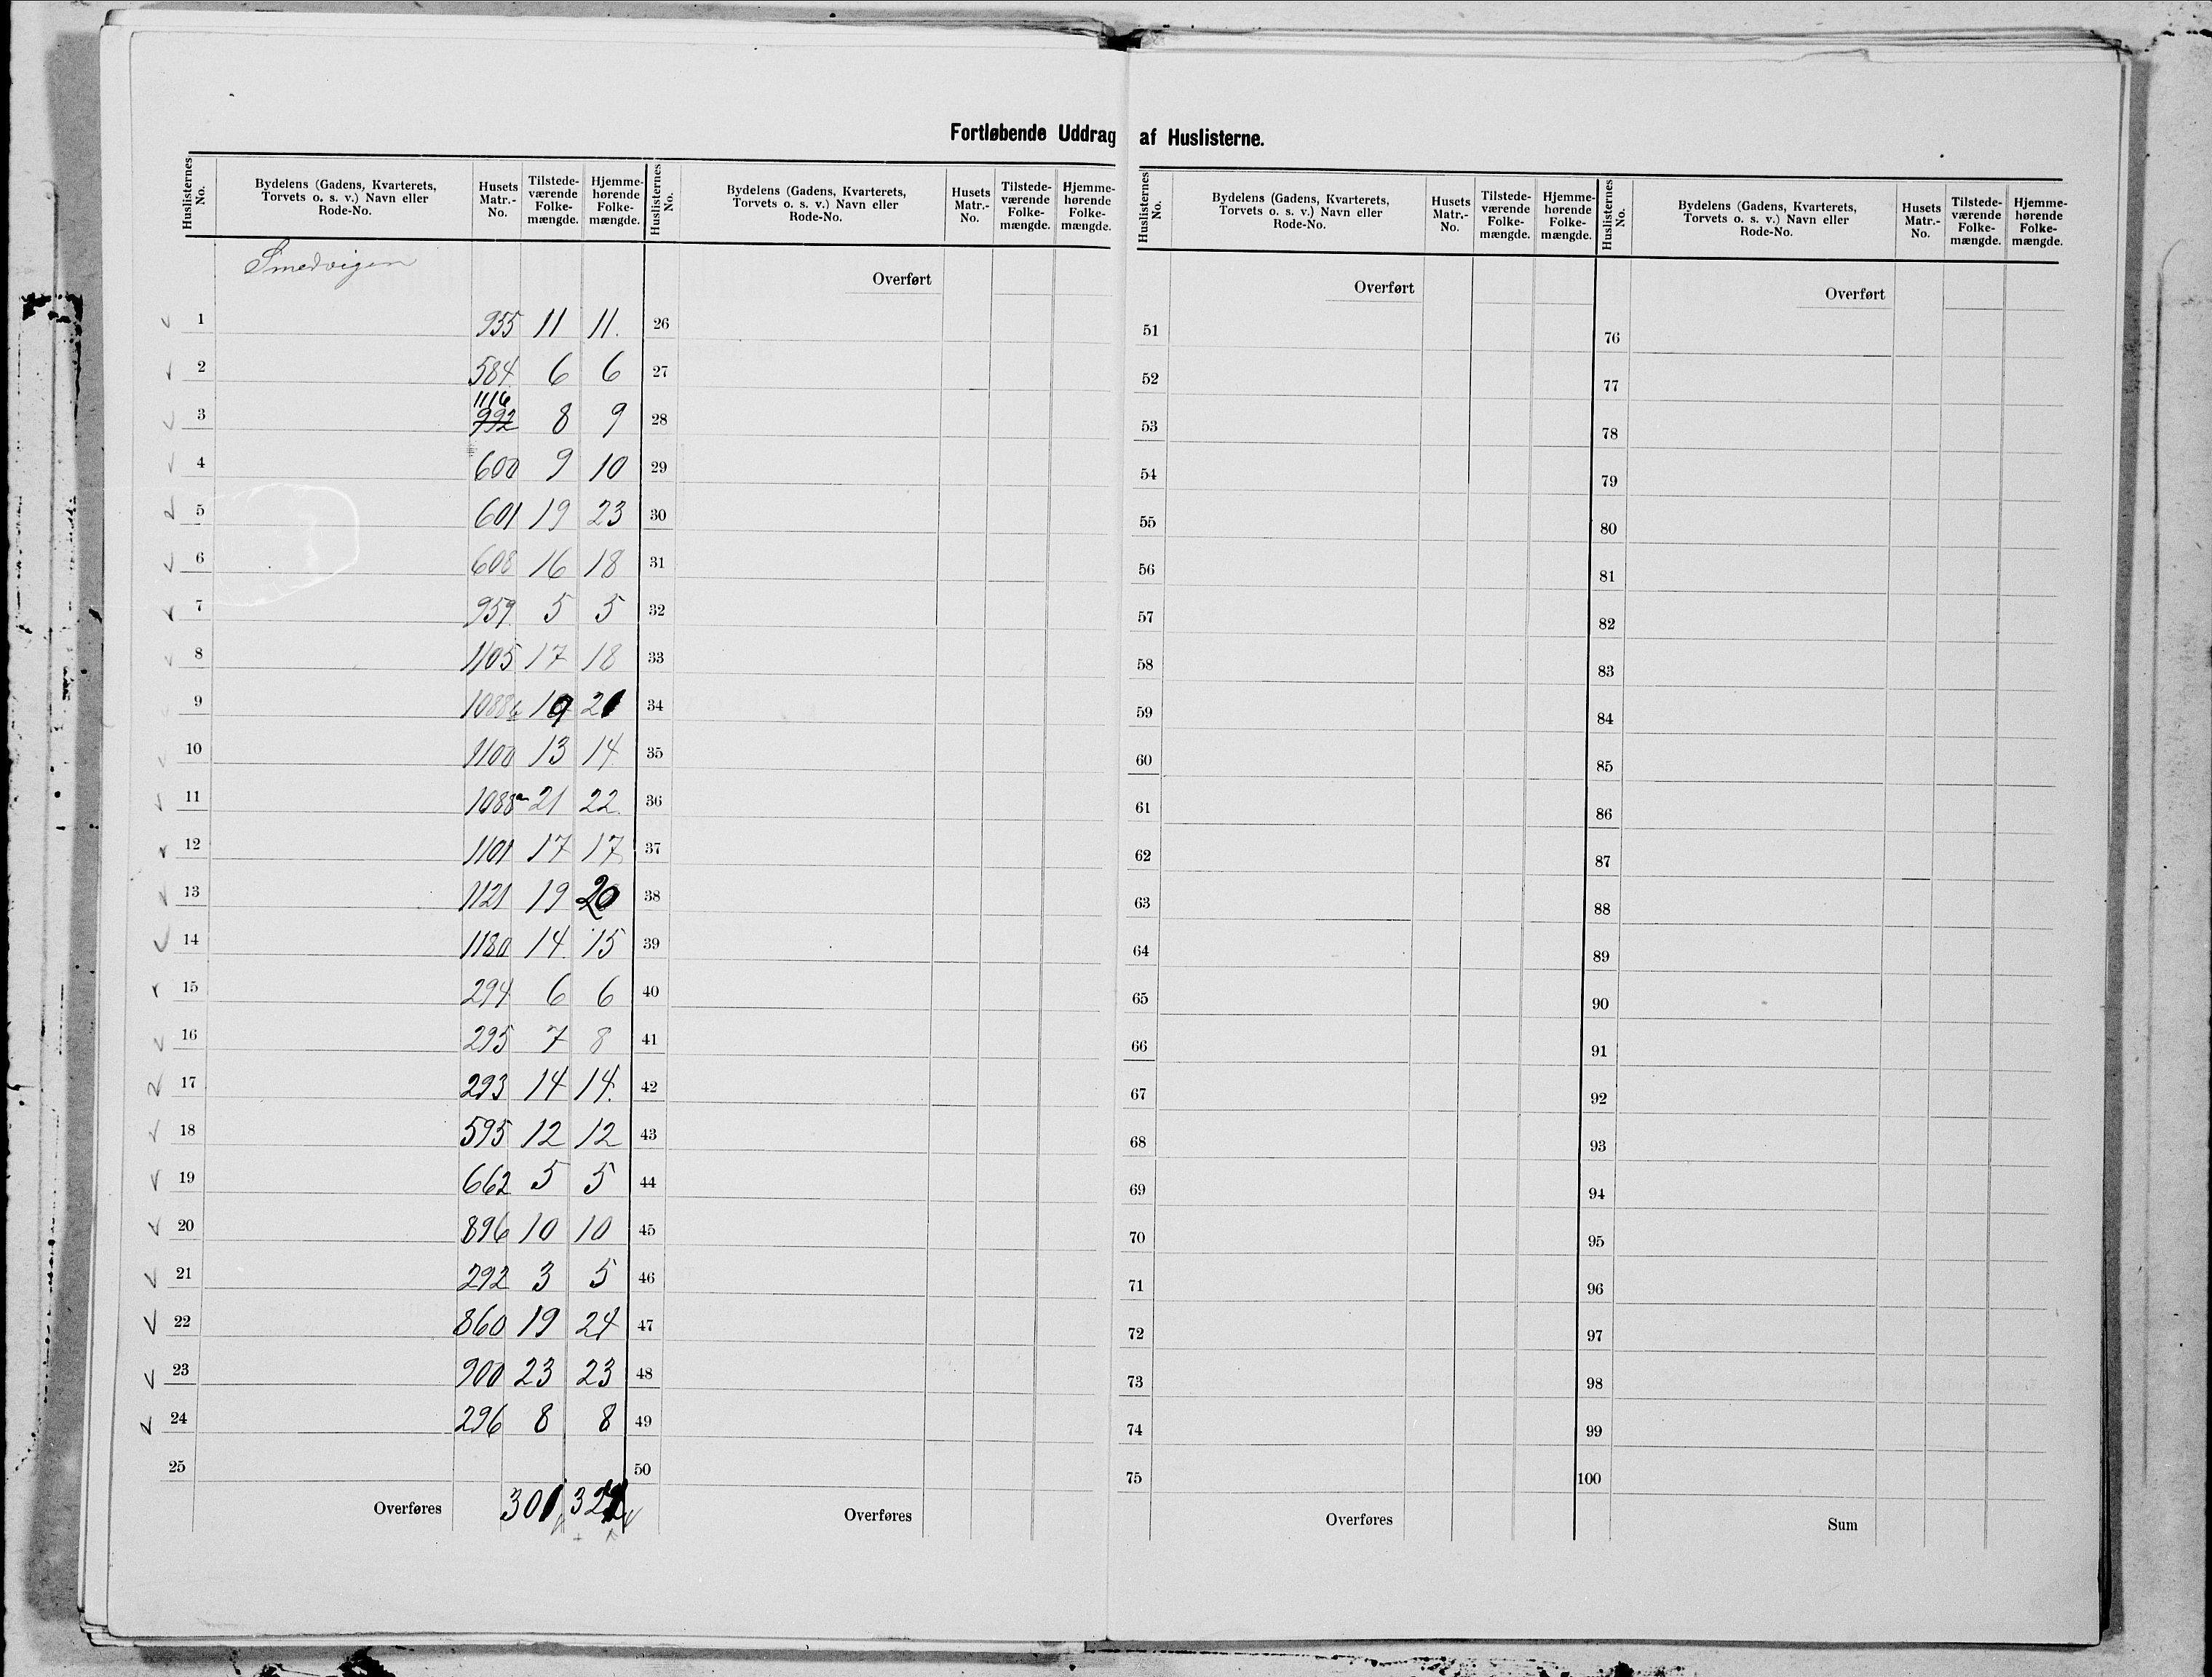 Fortløbende Uddrag af Huslisterne.
Huslisternes No. Bydelens (Gadens, Kvarterets, Torvets o. s. v.) Navn eller Rode-No. Husets Matr.-No. Tilstede-værende Folke-mængde. Hjemme-hørende Folke-mængde. Huslisternes No. Bydelens (Gadens, Kvarterets, Torvets o. s. v.) Navn eller Rode-No. Husets Matr.-No. Tilstede-værende Folke-mængde. Hjemme-hørende Folke-mængde. Huslisternes No. Bydelens (Gadens, Kvarterets, Torvets o. s. v.) Navn eller Rode-No. Husets Matr.-No. Tilstede-værende Folke-mængde. Hjemme-hørende Folke-mængde. Huslisternes No. Bydelens (Gadens, Kvarterets, Torvets o. s. v.) Navn eller Rode-No. Husets Matr.-No. Tilstede-værende Folke-mængde. Hjemme-hørende Folke-mængde.
Smedvigen Overført Overført Overført
1 955 11 11. 26 51 76
2 584 6 6 27 52 77
1116
3 992 8 9 28 53 78
4 600 9 10 29 54 79
5 601 19 23 30 55 80
6 608 16 18 31 56 81
7 959 5 5 32 57 82
8 1105 17 18 33 58 83
9 1088b 19 21 34 59 84
10 1100 13 14 35 60 85
11 1088a 21 22. 36 61 86
12 1101 17 17 37 62 87
13 1121 19 20 38 63 88
14 1180 14 15 39 64 89
15 294 6 6 40 65 90
16 295 7 8 41 66 91
17 293 14 14. 42 67 92
18 595 12 12 43 68 93
19 662 5 5 44 69 94
20 896 10 10 45 70 95
21 292 3 5 46 71 96
22 860 19 24 47 72 97
23 900 23 23 48 73 98
24 296 8 8 49 74 99
25 50 75 100
Overføres 301 Overføres Overføres Sum